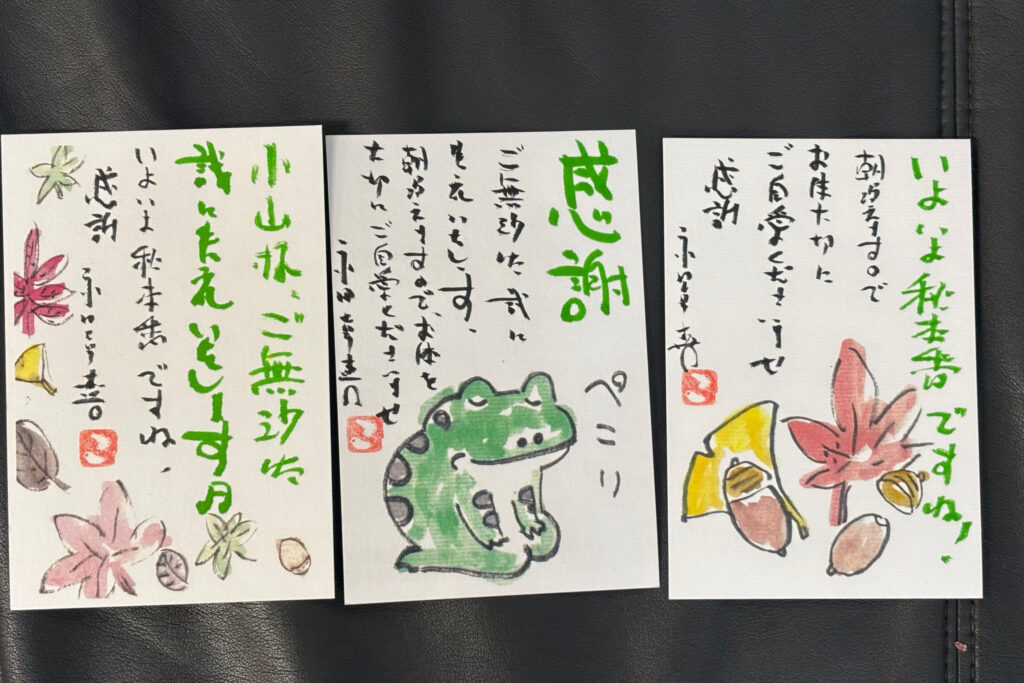 小山様、ご無沙汰
誠に失礼いたします
いよいよ秋本番ですね、
感謝
感謝。
ご無沙汰、誠に
失礼いたします、
朝冷えますので、お体を
大切にご自愛くださいませ
ぺこり
いよいよ秋本番ですね、
朝冷えますので
お体大切に
ご自愛くださいませ
感謝